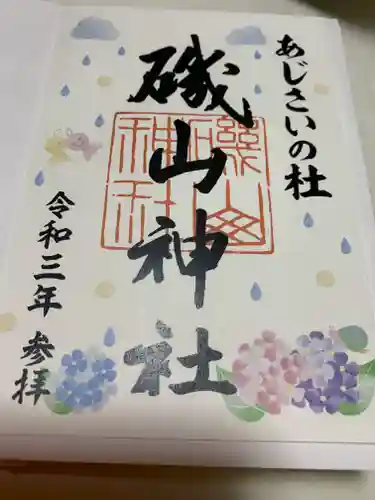 あじさいの社
磯山神社
磯山神社
令和三年 参拝